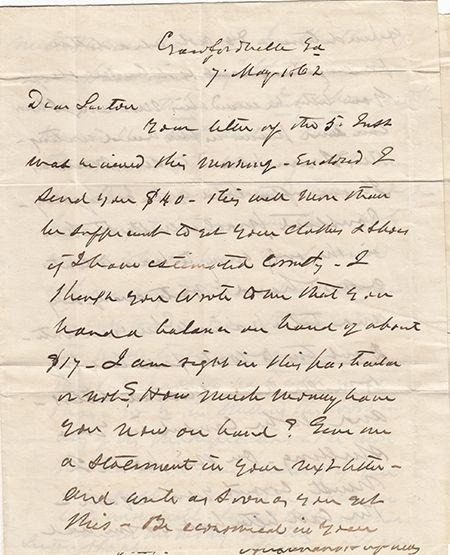 Crawfordville Ga
7. May 1862
Dear Linton
Your letter of the 5. Inst
was received this morning - Enclosed I
send you $40 - this will more than
be sufficient to get your clothes & shoes
if I have estimated correctly - I
though you wrote to me that you
had a balance on hand of about
$17 - I am right in this particular
or not? How much money have
you now on hand? Give me
a statement in your next letter -
and write as soon as you get
this - Be economical in your